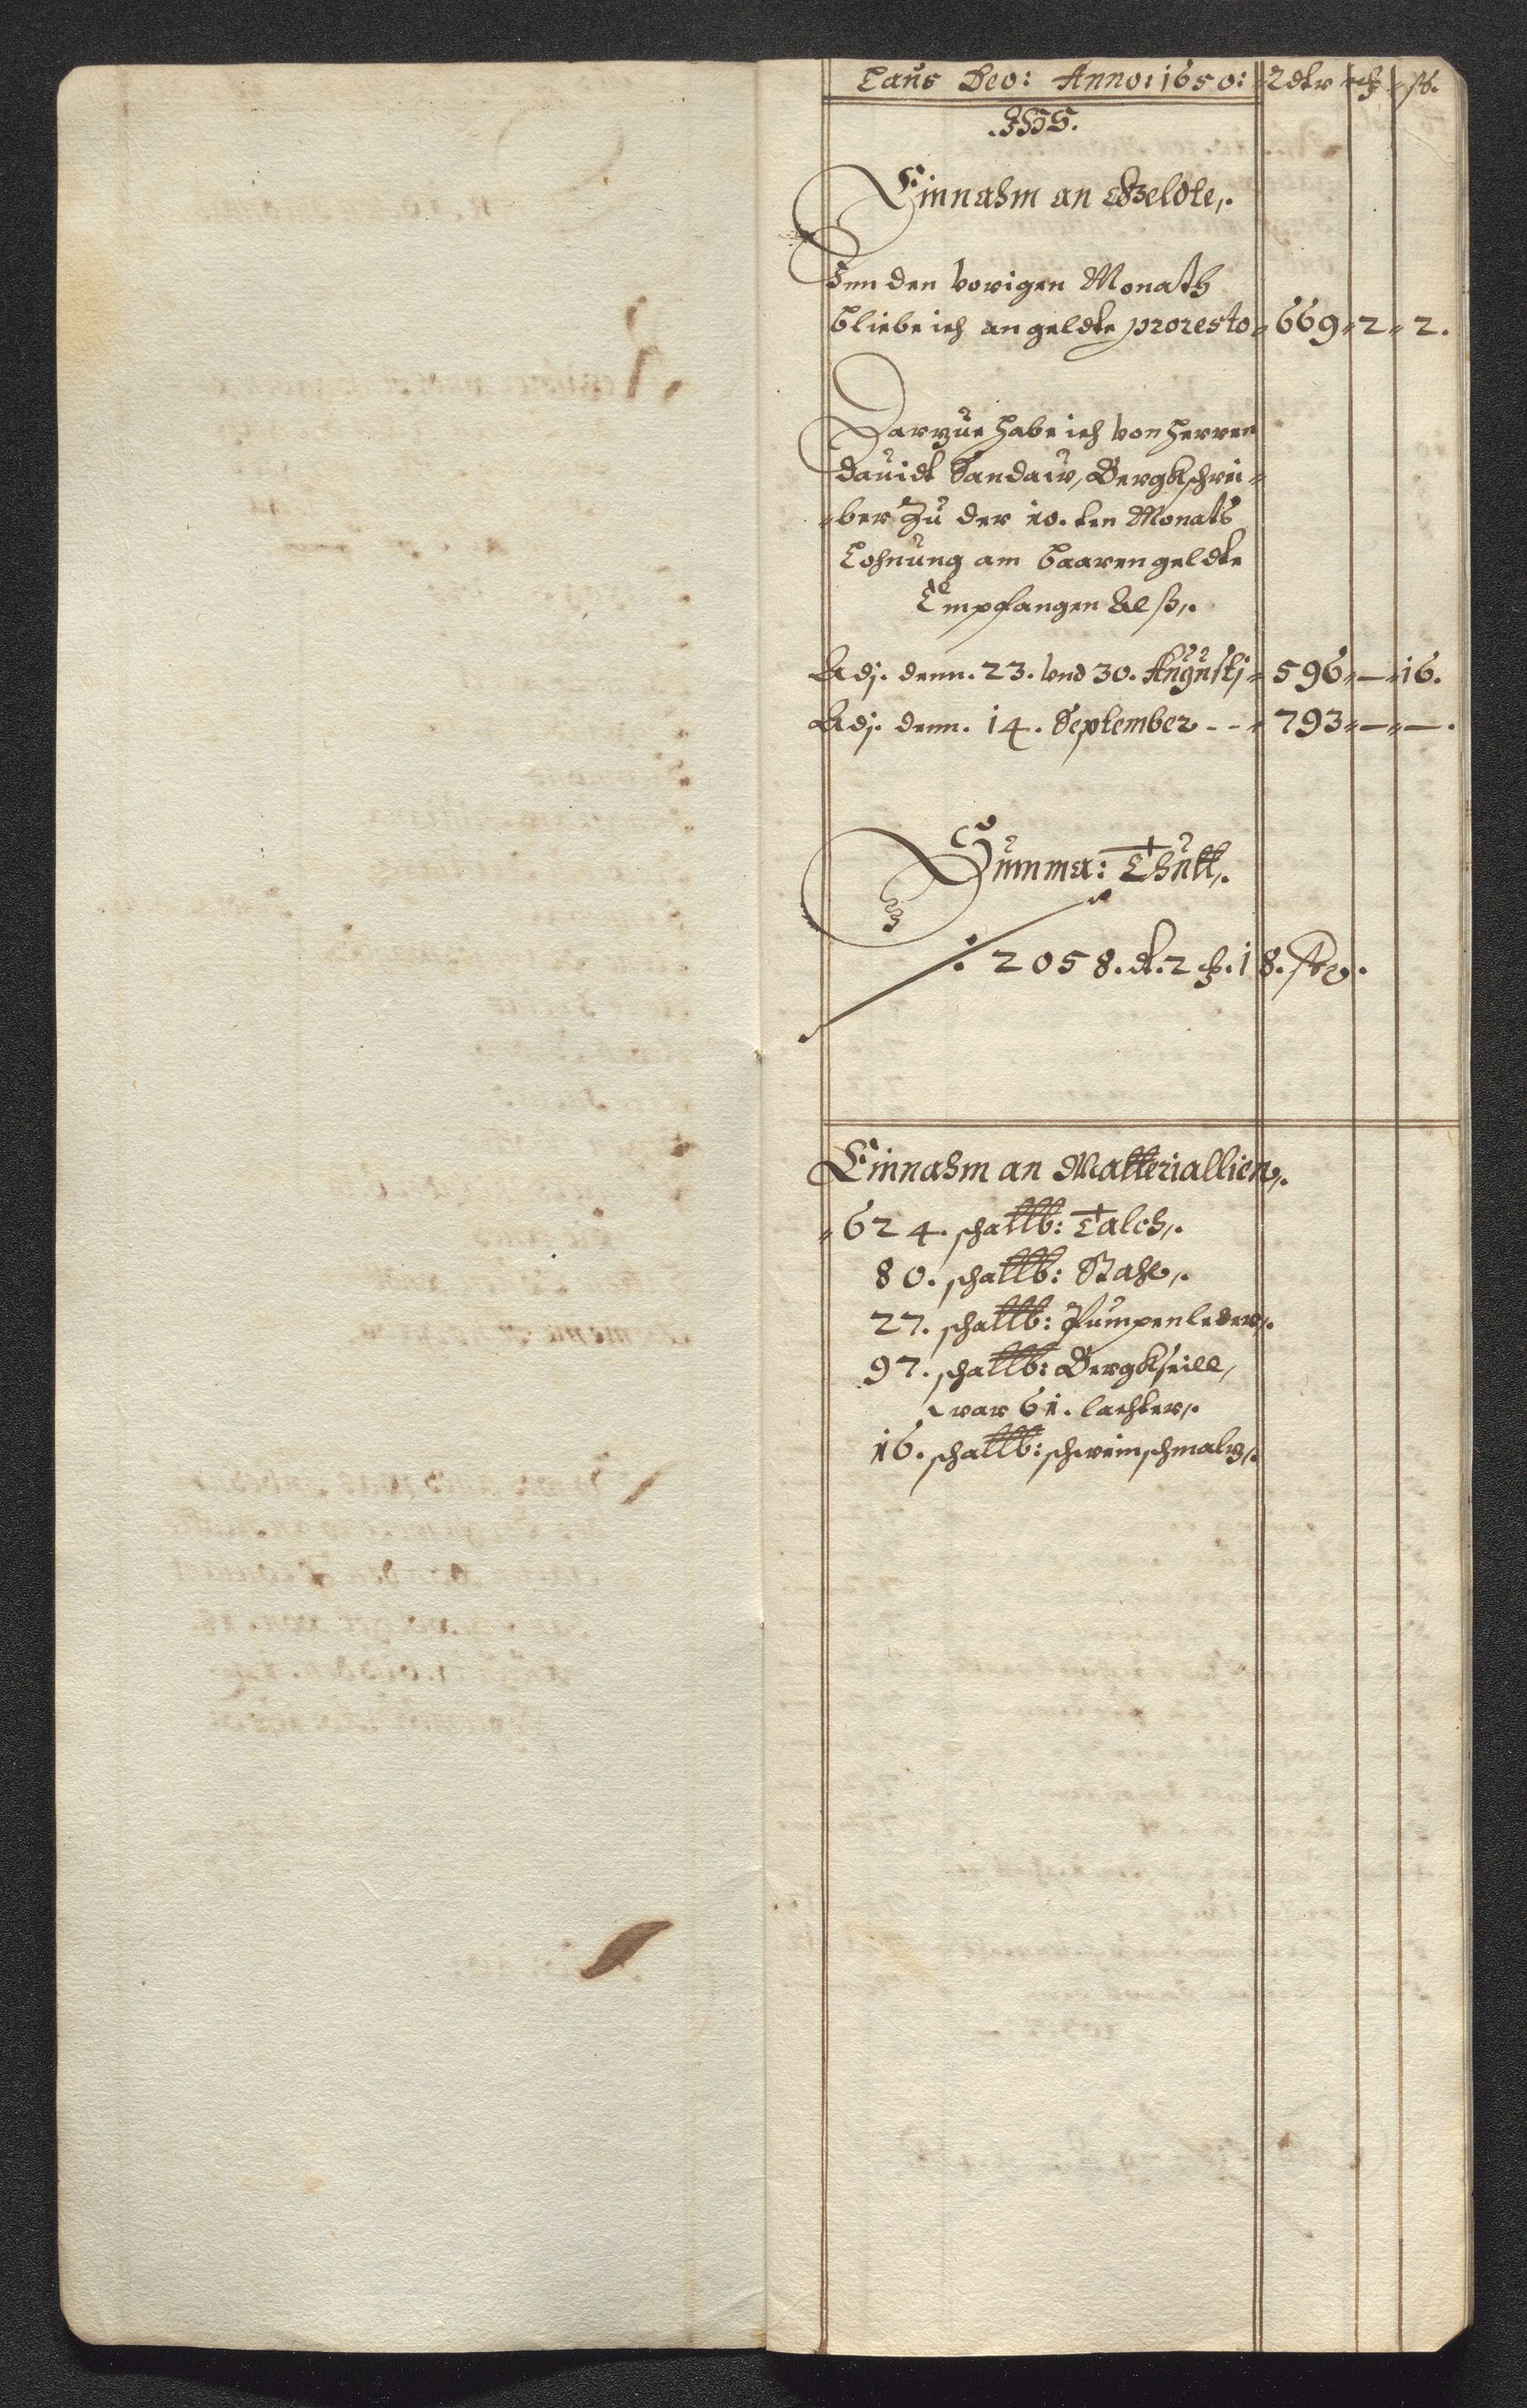 Laus Deo: Anno: 1650: Rdlr ß.
JHS.
Einnahm an Geldte,.
Inn den vorigen Monath
bliebe ich an geldte pro resto 669 2 2.
Darzue habe ich von Herren
Dauidt Sandaw, Bergkschrei=
=ber zu der 10. ten Monats
Lohnung am baaren geldte
Empfangen Alß,.
Adj. denn. 23. vnd 30. Augusti 596 — 16.
Adj. denn. 14. September - - 793 — —.
Summa: Thutt,.
2058. d. 2 18.
Einnahm an Matteriallien,.
624. schallb: Talch,.
80. schallb: Stahl,.
27. schallb: Pumpenleder,.
97. schallb: Bergkseill,
war 61. lachter,.
16. schallb: schweinschmaltz,.